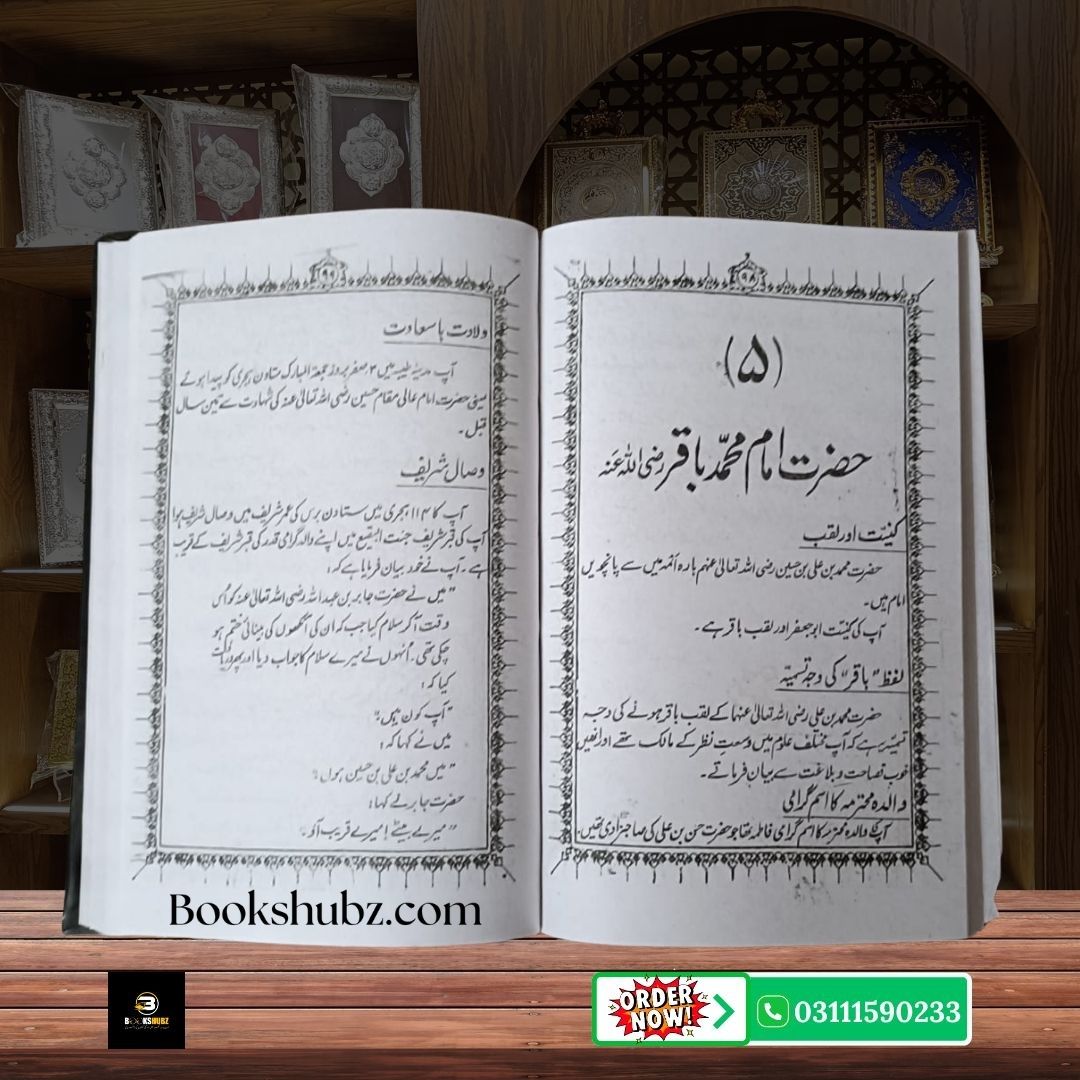 ۹۸
(۵)
حضرت امام محمّد باقر رضی اللہ عنہ
کنیّت اور لقب
حضرت محمد بن علی بن حسین رضی اللہ تعالیٰ عنہم بارہ ائمہ میں سے پانچویں
امام ہیں۔
آپ کی کنیّت ابو جعفر اور لقب باقر ہے۔
لفظ "باقر" کی وجہ تسمیّہ
حضرت محمد بن علی رضی اللہ تعالیٰ عنہما کے لقب باقر ہونے کی وجہ
تسمیّہ یہ ہے کہ آپ مختلف علوم میں وسعتِ نظر کے مالک تھے اور انھیں
خوب فصاحت و بلاغت سے بیان فرماتے۔
والدہ محترمہ کا اسم گرامی
آپ کی والدہ محترمہ کا اسم گرامی فاطمہ تھا جو حضرت حسن بن علی کی صاحبزادی تھیں۔
۹۹
ولادت باسعادت
آپ مدینہ طیبہ میں ۳ صفر بروز جمعۃ المبارک ستاون ہجری کو پیدا ہوئے
یعنی حضرت امام عالی مقام حسین رضی اللہ تعالیٰ عنہ کی شہادت سے تین سال
قبل۔
وصال شریف
آپ کا ۱۱۴ ہجری میں ستاون برس کی عمر شریف میں وصال شریف ہوا
آپ کی قبر شریف جنت البقیع میں اپنے والد گرامی قدر کی قبر شریف کے قریب
ہے۔ آپ نے خود بیان فرمایا ہے کہ:
"میں نے حضرت جابر بن عبداللہ رضی اللہ تعالیٰ عنہ کو اُس
وقت آ کر سلام کیا جب کہ ان کی آنکھوں کی بینائی ختم ہو
چکی تھی۔ اُنھوں نے میرے سلام کا جواب دیا اور پھر دریافت
کیا کہ:
"آپ کون ہیں؟"
میں نے کہا کہ:
"میں محمد بن علی بن حسین ہوں۔"
حضرت جابر نے کہا:
"میرے بیٹے! میرے قریب آؤ۔"
Bookshubz.com
BOOKSHUBZ
ORDER
NOW!
03111590233